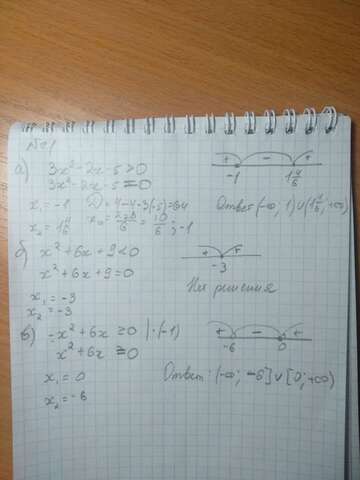 №1
а) 3x² - 2x - 5 > 0
3x² - 2x - 5 = 0
x₁ = -1 D = 4 - 4·3(-5) = 64
x₂ = 1 4/6 x₁₂ = 2±8/6 = 10/6 ; -1
+ - +
-1 1 4/6
Ответ (-∞, 1) ∪ (1 4/6, +∞)
б) x² + 6x + 9 < 0
x² + 6x + 9 = 0
x₁ = -3
x₂ = -3
+ +
-3
Нет решения
в) -x² + 6x ≥ 0 | · (-1)
x² + 6x ≥ 0
x₁ = 0
x₂ = -6
+ - +
-6 0
Ответ: (-∞; -6] ∪ [0; +∞)